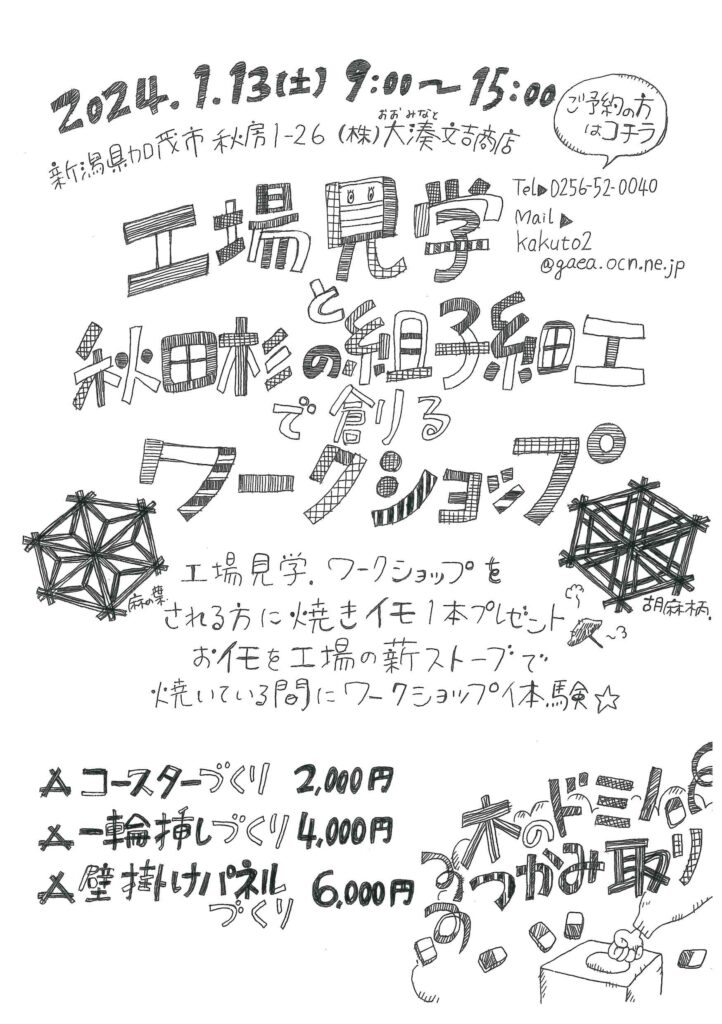 2024.1.13(土) 9:00〜15:00
新潟県加茂市 秋房1-26 (株)大湊文吉商店
おおみなと
ご予約の方
はコチラ
Tel▶0256-52-0040
Mail▶
kakuto2
@gaea.ocn.ne.jp
工場見学
と
秋田杉の組子細工
で創る
ワークショップ
麻の葉
胡麻柄
工場見学.ワークショップを
される方に焼きイモ1本プレゼント
おイモを工場の薪ストーブで
焼いている間にワークショップ体験☆
コースターづくり 2,000円
一輪挿しづくり 4,000円
壁掛けパネル
づくり 6,000円
木のドミノ
つかみ取り